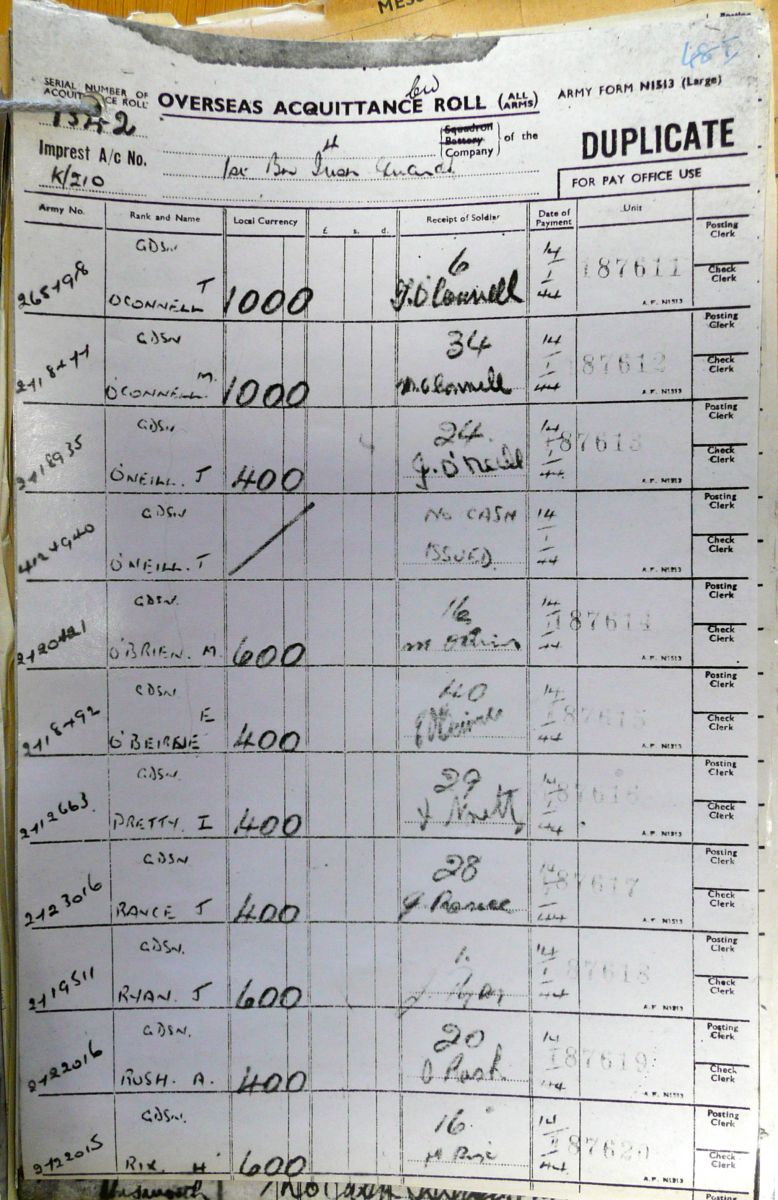 MESS
48
SERIAL NUMBER OF
ACQUITTANCE ROLL
OVERSEAS ACQUITTANCE ROLL (ALL ARMS)
ARMY FORM N1513 (Large)
1342
4
Squadron
Battery
Company
of the
DUPLICATE
Imprest A/c No.
1st Bn Irish Guards
K/210
FOR PAY OFFICE USE
Army No. Rank and Name Local Currency £ s. d. Receipt of Soldier Date of Payment Unit
Posting Clerk
GDSN 6 14
2657918 T 1 187611 Check Clerk
OCONNELL 1000 J. O'Connell 44 A.F. N1513
Posting Clerk
GDSN 34 14
M. 1 187612 Check Clerk
O'CONNELL. 1000 M. O'Connell 44 A.F. N1513
Posting Clerk
GDSN 24 14
2718935 1 187613 Check Clerk
O'NEILL. J 400 J. O'Neill 44 A.F. N1513
Posting Clerk
GDSN NO CASH 14
1 Check Clerk
O'NEILL. T ISSUED. 44 A.F. N1513
Posting Clerk
GDSN. 16 14
2720721 1 187614 Check Clerk
O'BRIEN. M. 600 44 A.F. N1513
Posting Clerk
GDSN 40 14
2718792 E 1 187615 Check Clerk
O'BEIRNE 400 44 A.F. N1513
Posting Clerk
GDSN. 29 14
2712663. 1 187616 Check Clerk
PRETTY. I 400 44 A.F. N1513
Posting Clerk
GDSN 28 14
2723016 1 187617 Check Clerk
RANCE J 400 J Rance 44 A.F. N1513
Posting Clerk
GDSN. 1. 14
2719511 1 187618 Check Clerk
RYAN. J 600 J Ryan 44 A.F. N1513
Posting Clerk
GDSN. 20 14
2722016 1 187619 Check Clerk
RUSH. A. 400 Rush 44 A.F. N1513
Posting Clerk
GDSN. 16 14
2722015 1 187620 Check Clerk
RIX. H 600 H Rix 44 A.F. N1513